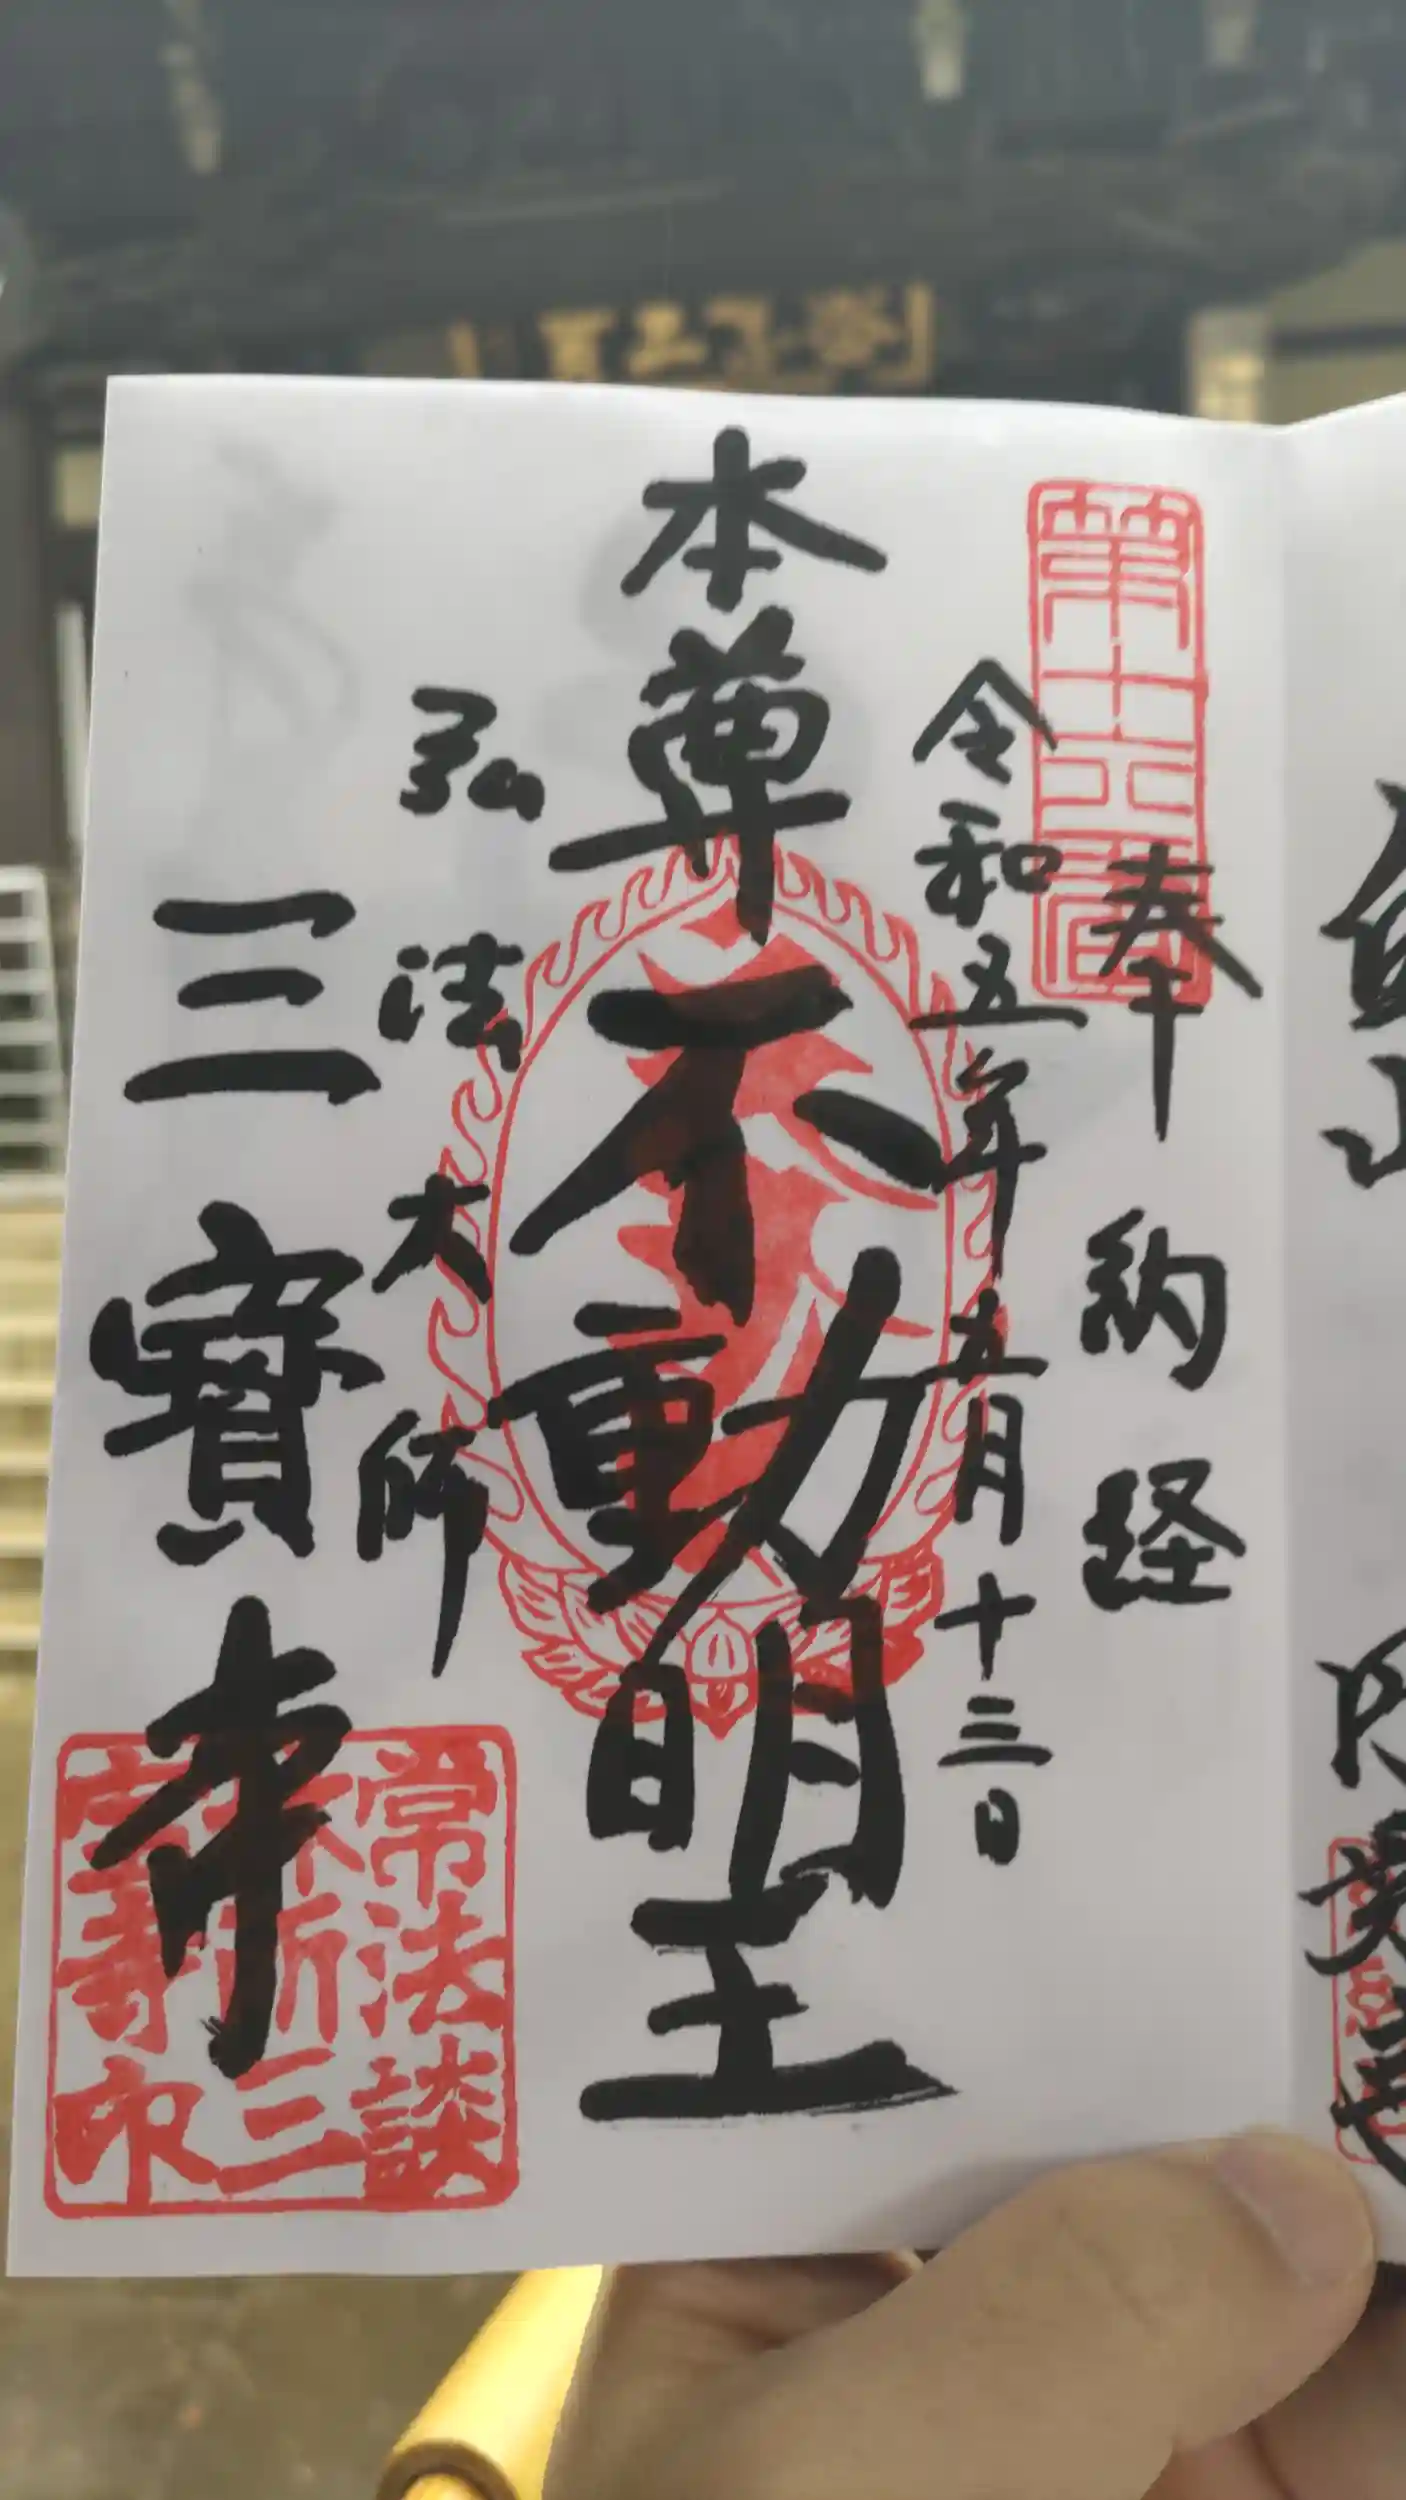 奉納経
令和五年五月十三日
本尊不動明王
弘法大師
三寶寺
常法談
林所三
宝寺印